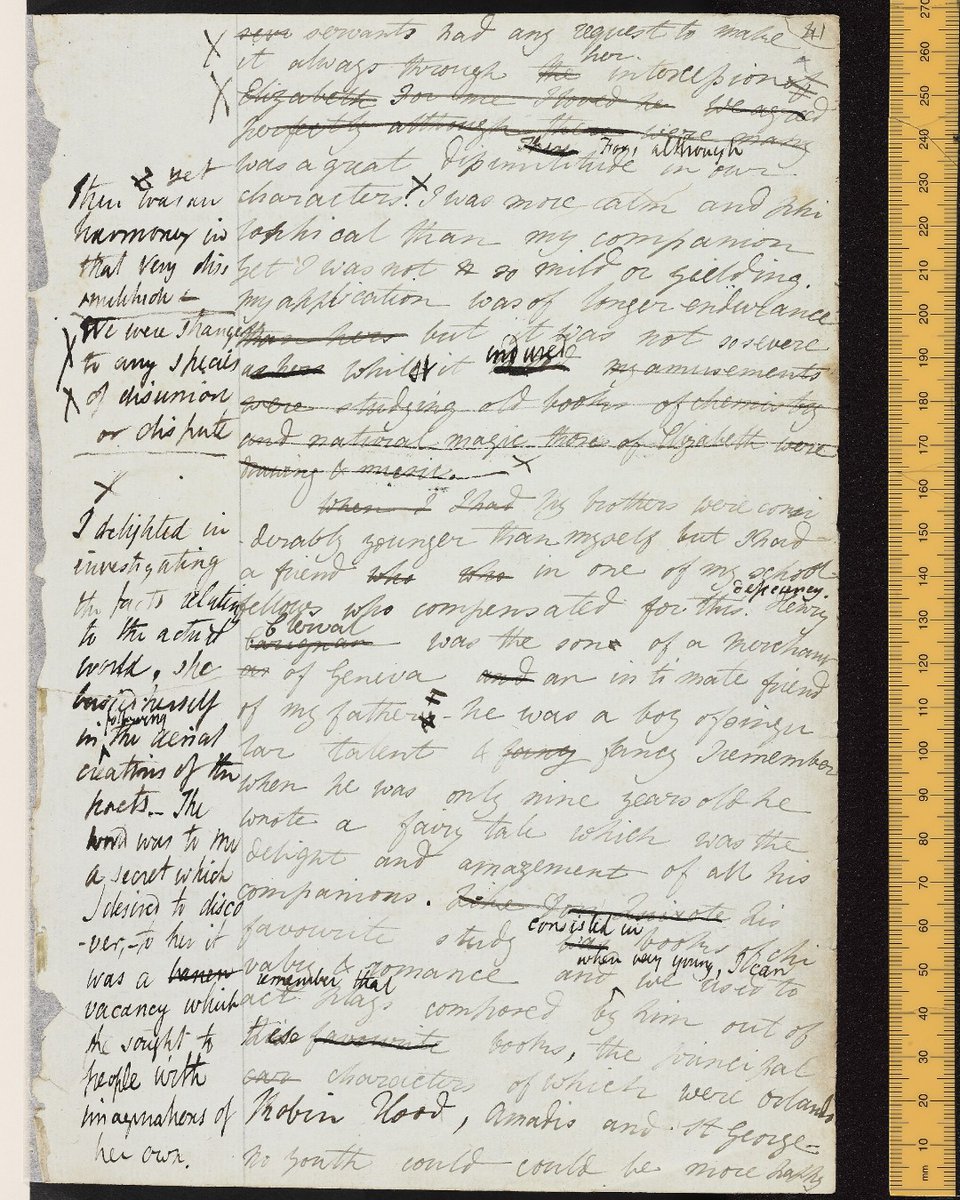 41
servants had any request to make
her.
it always through the intercession of
Elizabeth For me I loved he We agreed
perfectly although there were many
There For, although
was a great dissimilitude in our
characters. X I was more calm and phi
losophical than my companion
yet I was not so mild or yielding.
my application was of longer endurance
than hers but it was not so severe
endured
as hers whilst it my amusements
were studying old books of chemistry
and natural magic those of Elizabeth were
drawing & music. X
when I I had My brothers were consi
derably younger than myself but I had
a friend who who in one of my school
deficiency.
fellows who compensated for this. Henry
Clerval
was the son of a merchant
as of Geneva and an intimate friend
of my father - he was a boy of singu
lar talent & fancy fancy I remember
when he was only nine years old he
wrote a fairy tale which was the
delight and amazement of all his
companions. Like Don Quixote his
consisted in
favourite study was books of chi
when very young, I can
valry & romance and we used to
remember that
act plays composed by him out of
these favourite books, the principal
characters of which were Orlando
Robin Hood, Amadis and St George-
No youth could could be more happy
X
X
X yet
there was an
harmoney in
that very diss
imilitude -
X We were strangers
to any species
X of disunion
or dispute
X
I delighted in
investigating
the facts relating
to the actual
world, she
busied herself
following
in the aerial
creations of the
poets - The
world was to me
a secret which
I desired to disco
-ver, - to her it
was a
vacancy which
she sought to
people with
imaginations of
her own.
mm 10 20 30 40 50 60 70 80 90 100 110 120 130 140 150 160 170 180 190 200 210 220 230 240 250 260 270